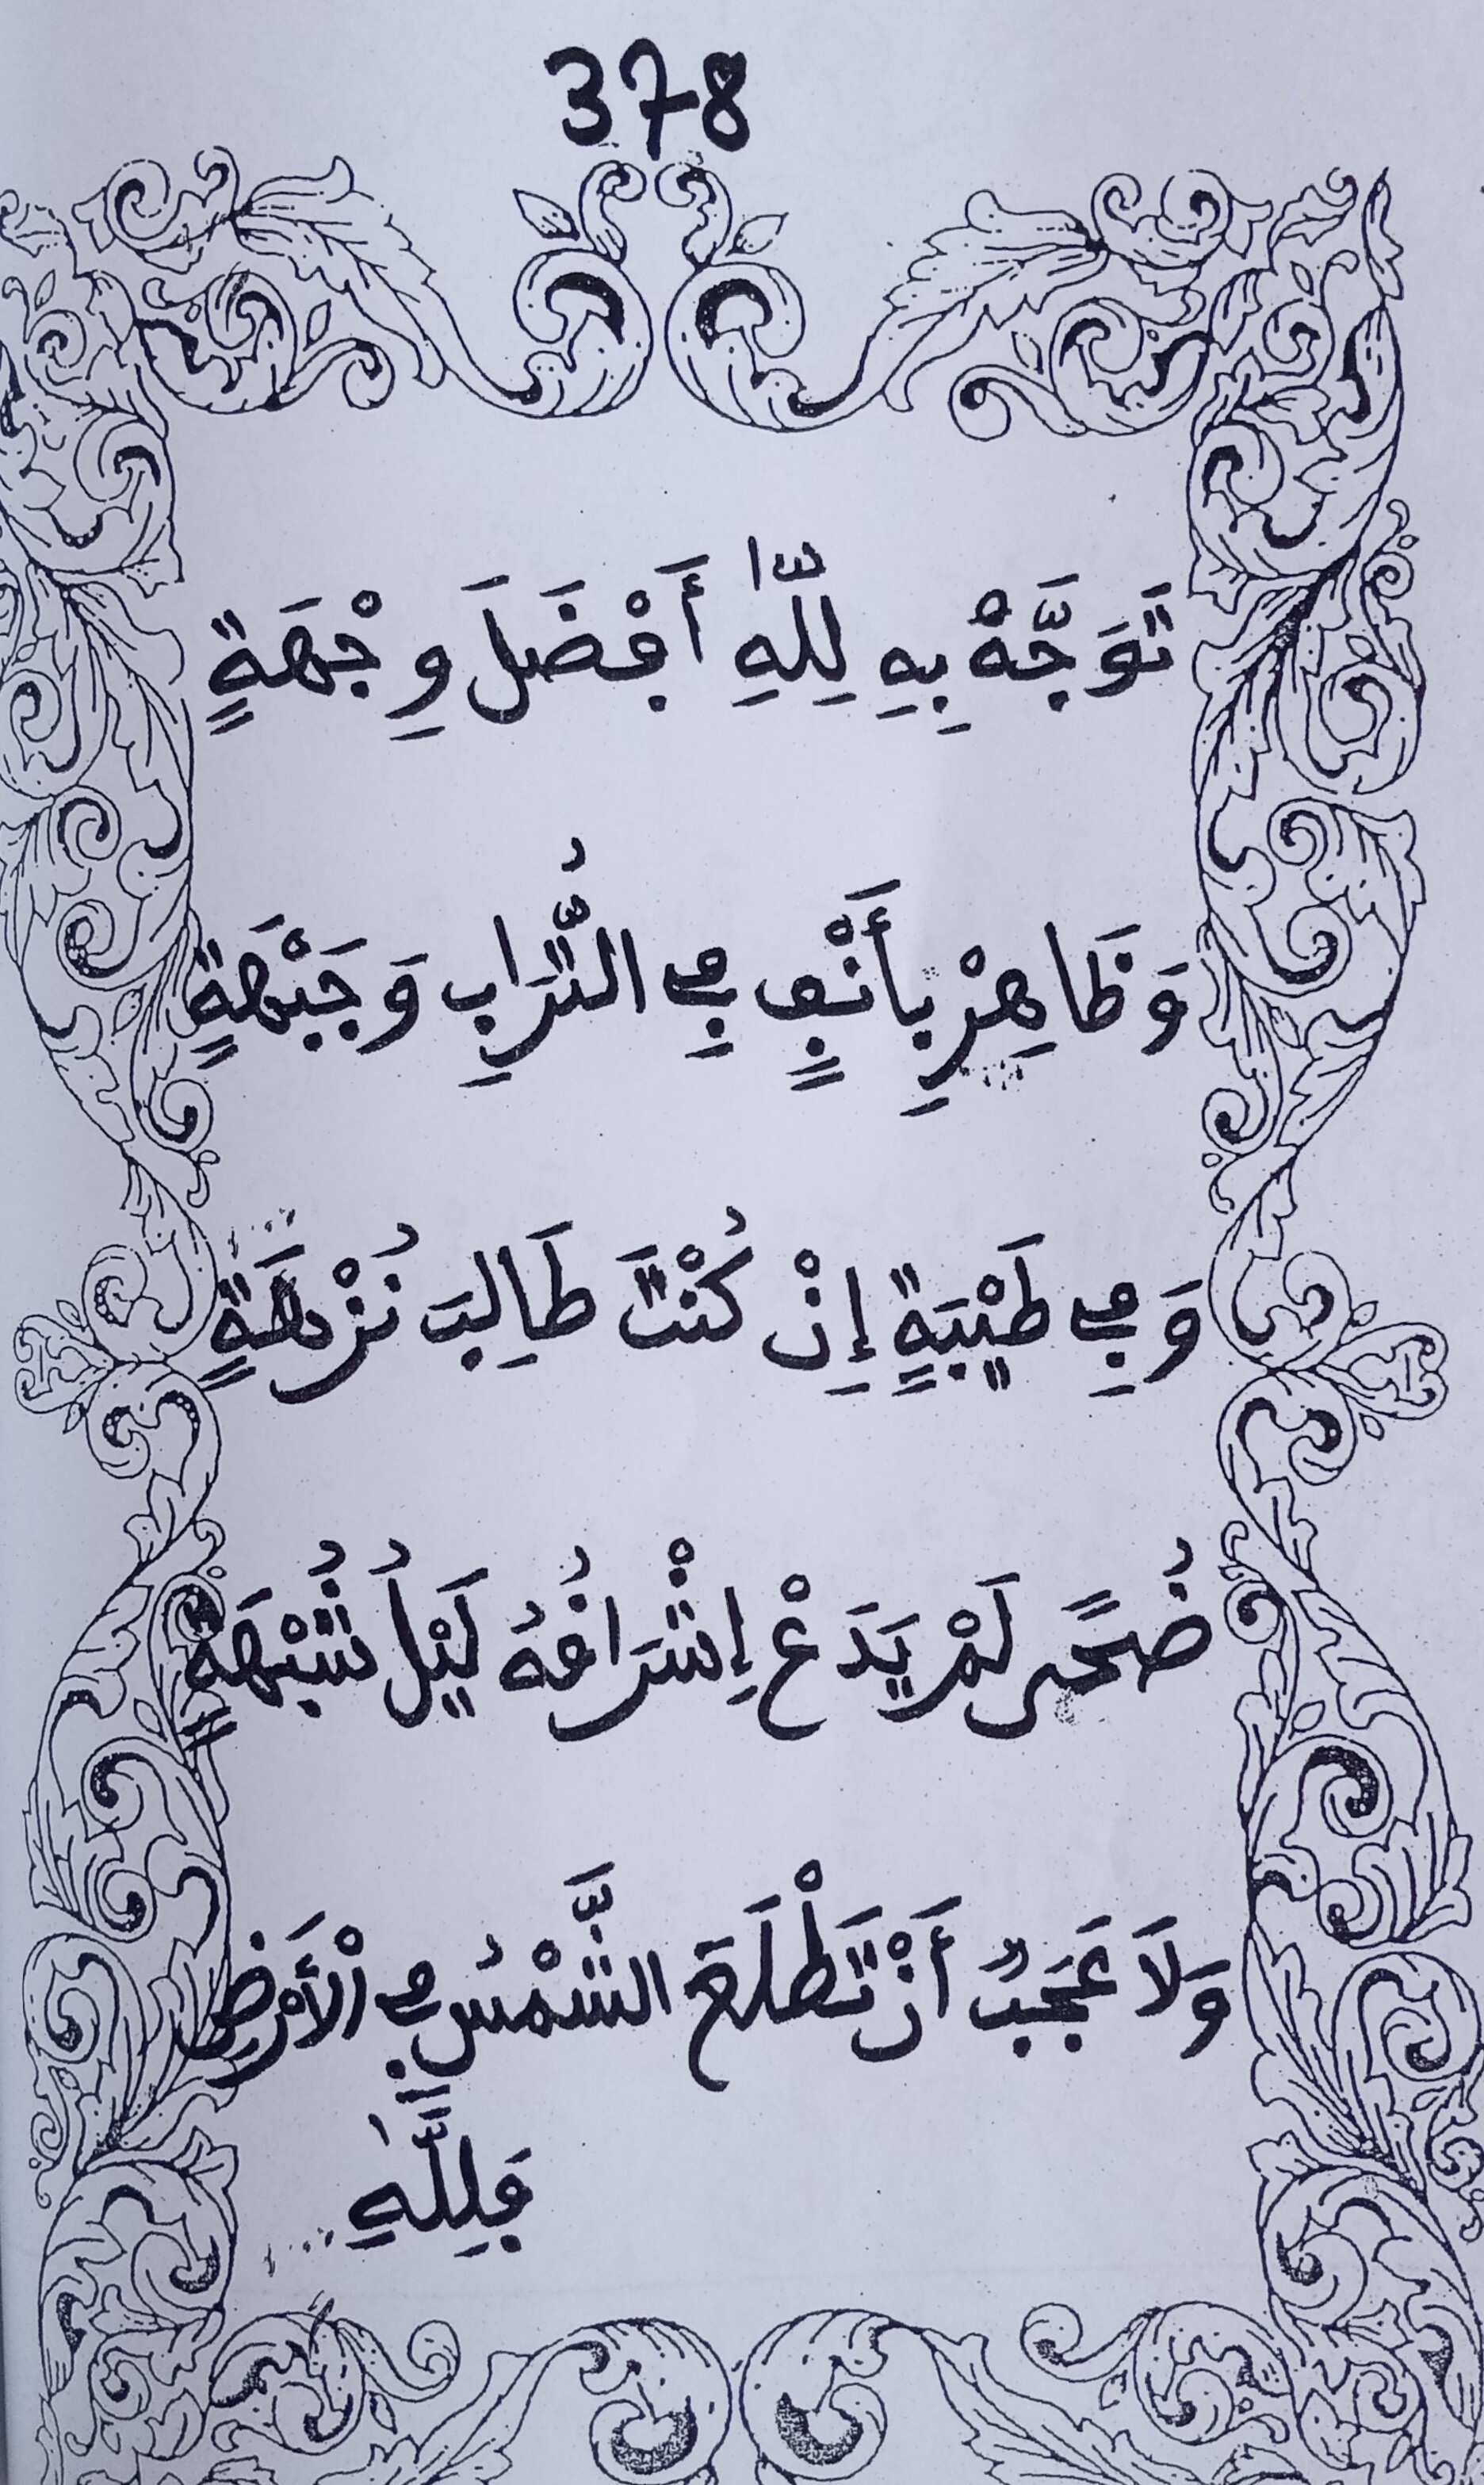 378
تَوَجَّهْ بِهِ لِلّٰهِ أَفْضَلَ وِجْهَةٍ
وَظَاهِرْ بِأَنْفٍ فِي التُّرَابِ وَجَبْهَةٍ
وَفِي طَيْبَةٍ إِنْ كُنْتَ طَالِبَ نُزْهَةٍ
ضُحًى لَمْ يَدَعْ إِشْرَاقُهُ لَيْلُ شُبْهَةٍ
وَلَا عَجَبٌ أَنْ تَطْلَعَ الشَّمْسُ فِي الْأَرْضِ
فَلِلَّهِ